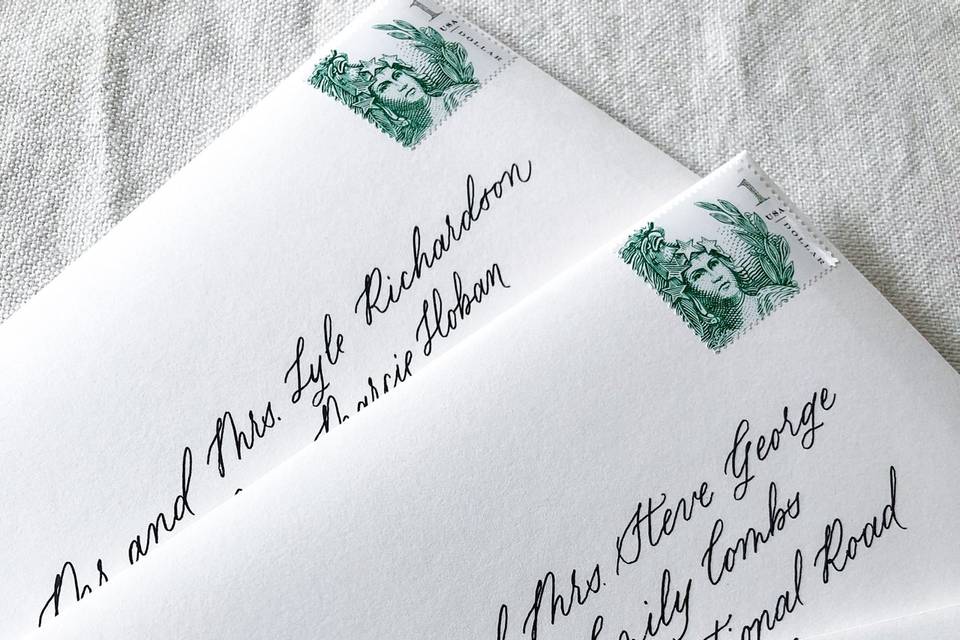 1
USA
DOLLAR
Mr and Mrs. Lyle Richardson
Marcie Hoban
1
USA
DOLLAR
Mrs. Steve George
Combs
Road